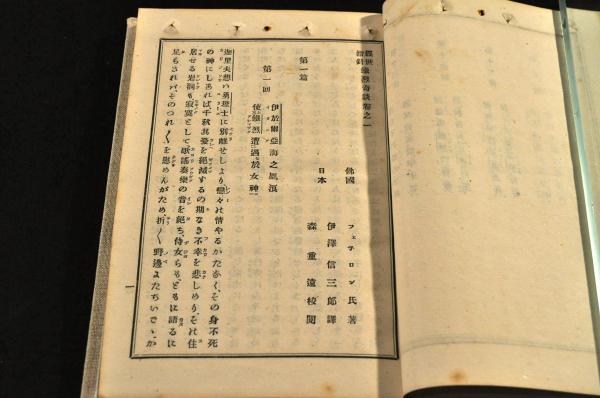 經世指針 鐵烈奇談卷之一
佛國 フェヌロン氏著
日本 伊澤信三郎譯
森重遠校閲
第一篇
第一回
伊於爾亞海之風浪
使鐵烈遭遇於女神
迦里夫想ハ勇理士に別離せしより戀々の情やるかたなく、その身不死
の神にしあれば千秋其憂を絶滅するの期なき不幸を悲しめり、それ住
居せる岩洞も寂寞として歌謡奏樂の音を絶ち、侍女らもともに語るに
足らされバそのつれ〱を慰めんがため折〱野邊よたちいでゝ、か
一